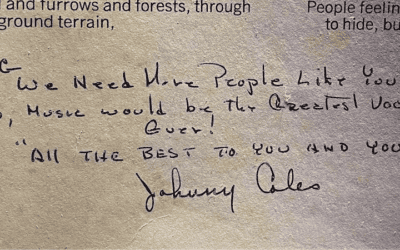 and furrows and forests, through
ground terrain,
People feelin
to hide, bu
We Need More People Like You
, Music would be the Greatest
Ever!
"All THE BEST TO YOU AND YOU
Johnny Coles